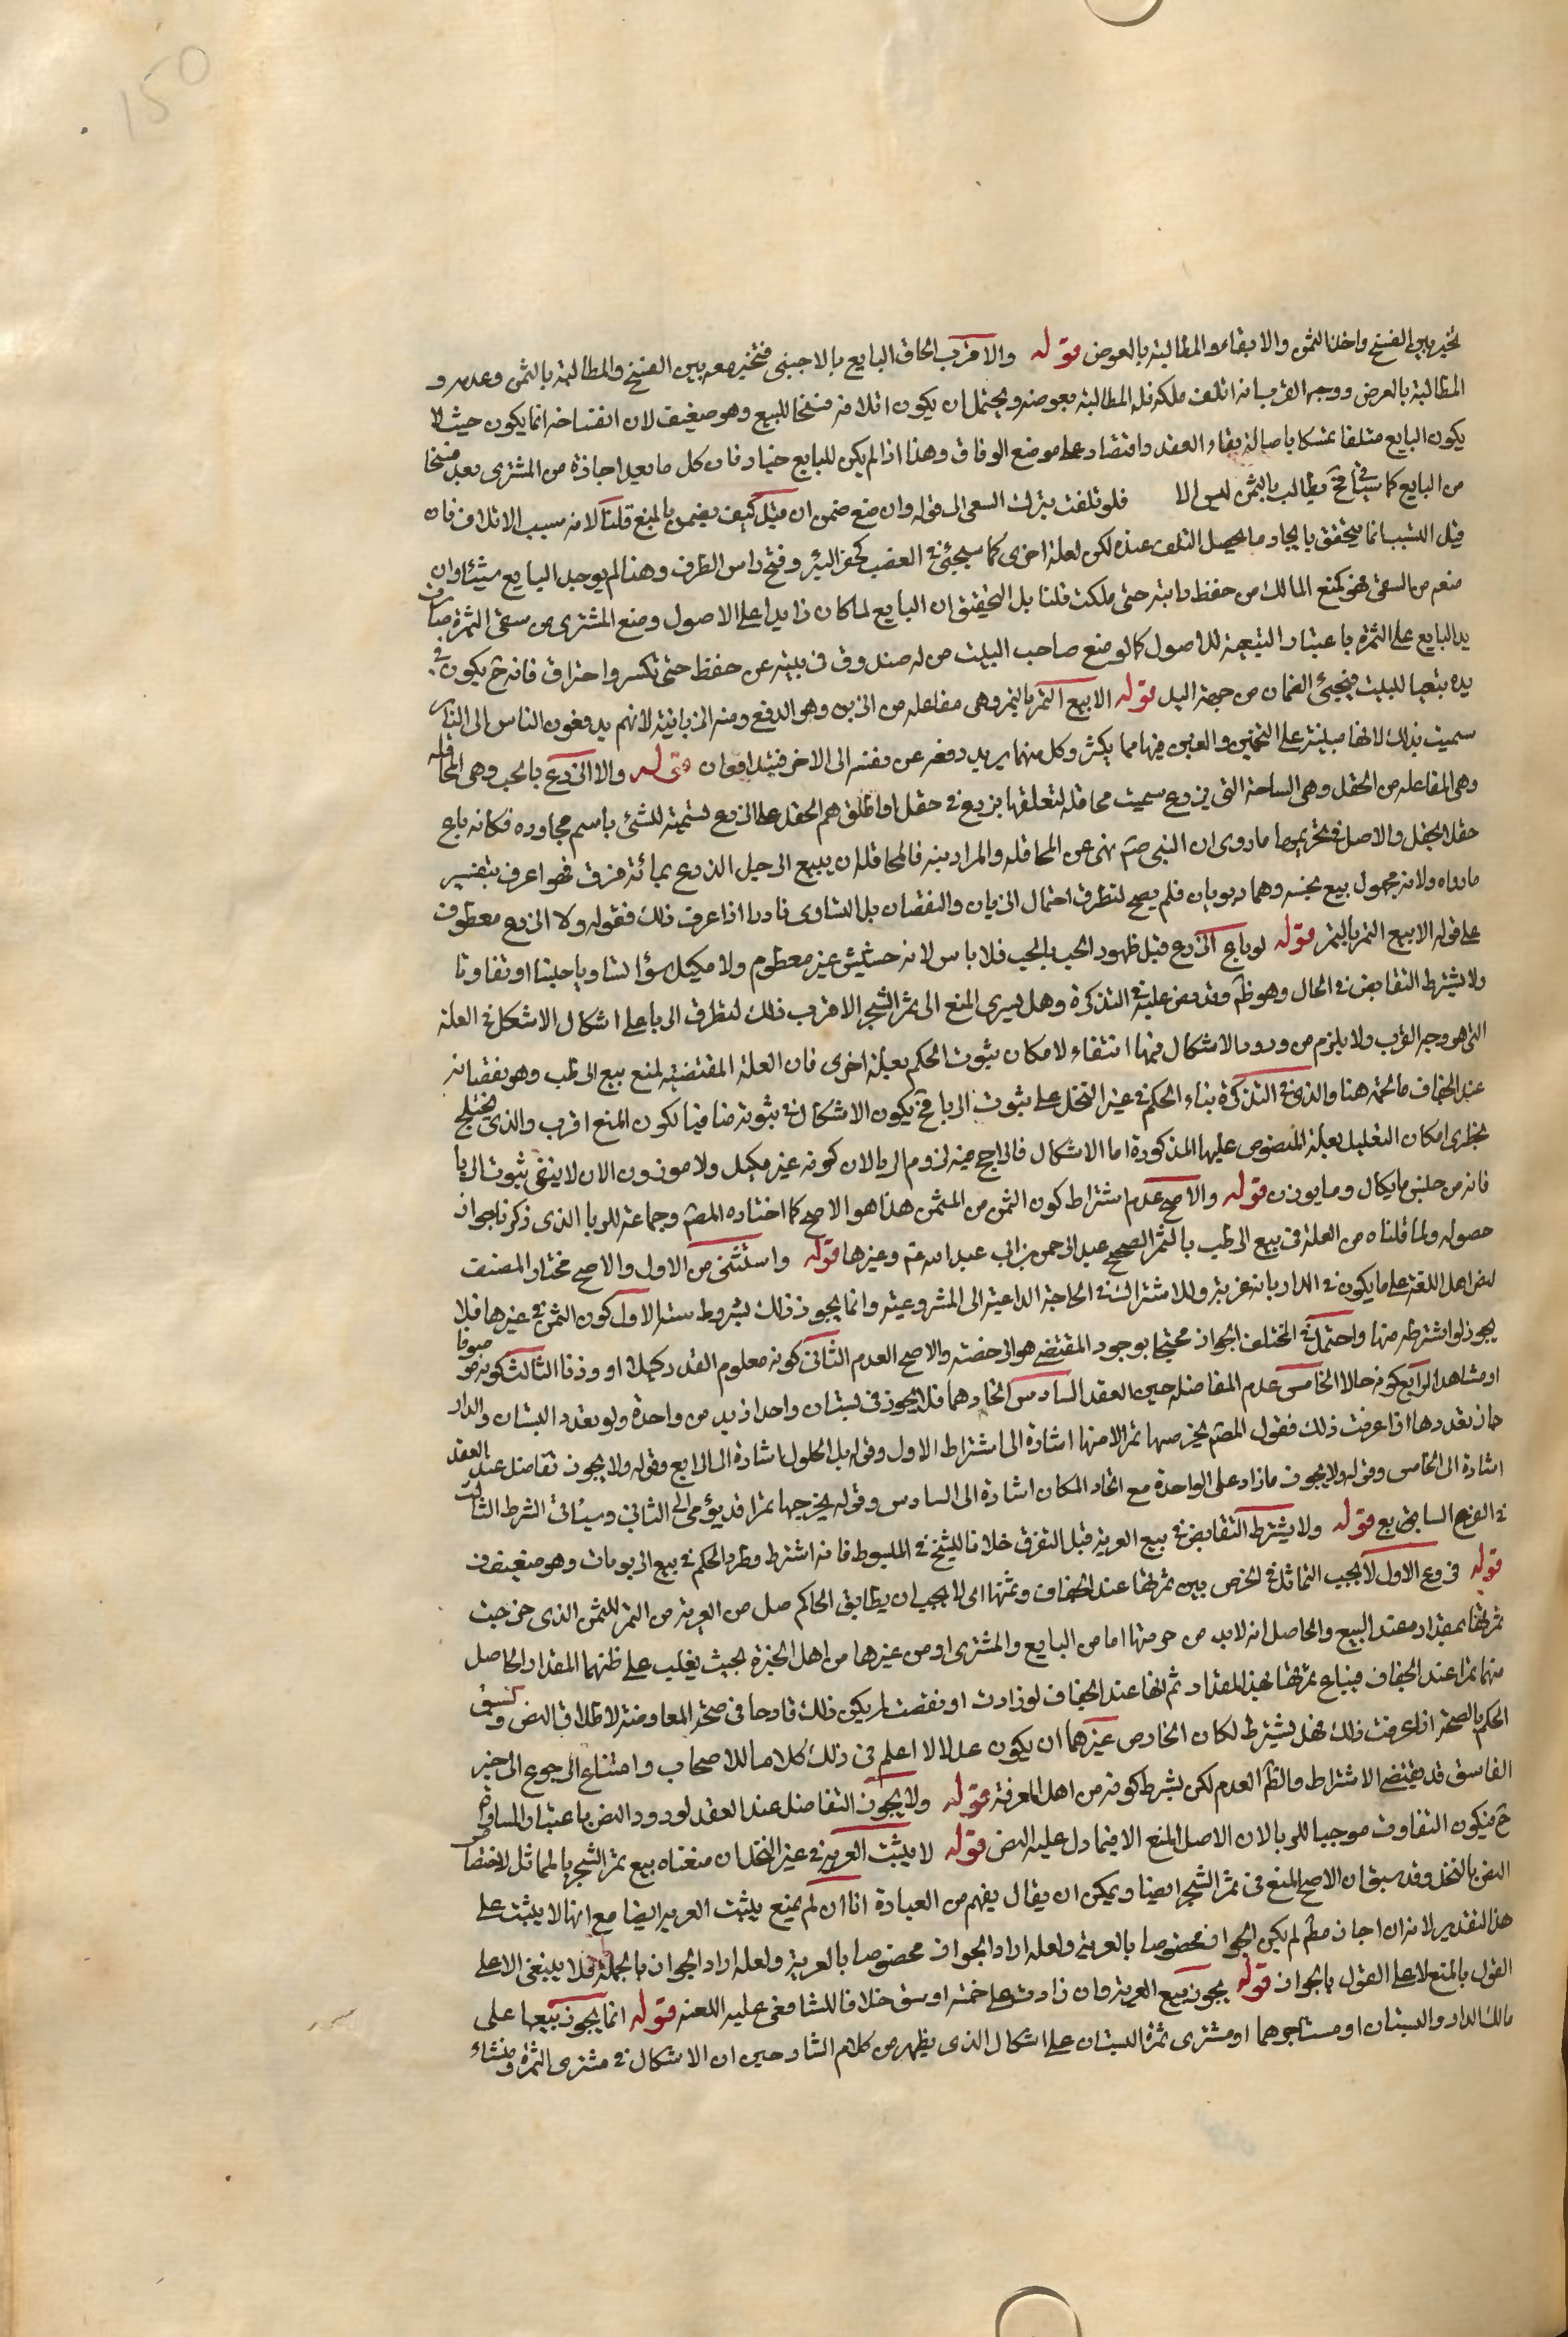 150
تخير بين الفسخ واخذ الثمن والابقاء والمطالبة بالعوض قوله والاقرب الحاق البايع بالاجنبى فتخير معه بين الفسخ والمطالبة بالثمن وعدمه و
المطالبة بالعوض ووجه القرب انه اتلف ملكه فله المطالبة بعوضه ويحتمل ان يكون اتلافه فسخا للبيع وهو ضعيف لان انفساخه انما يكون حيث لا
يكون البايع متلفا تمسكا باصالة بقاء العقد واقتصار على موضع الوفاق وهذا اذا لم يكن للبايع خيار فان كل ما يعد اجازة من المشترى يعد فسخا
من البايع كما سياتى فح يطالب بالثمن ليس الا فلو تلفت بترك السقى الى قوله وان منع ضمن ان قيل كيف يضمن بالمنع قلنا لانه سبب الاتلاف فان
قيل السبب انما يتحقق بايجاد ما يحصل التلف عنده لكن لعلة اخرى كما سيجئ فى الغصب كحفر البئر وفتح راس الظرف وهنا لم يوجد البايع شيئا وان
منعه من السقى فهو كمنع المالك من حفظ دابته حتى هلكت قلنا بل التحقيق ان البايع لما كان ذا يد على الاصول ومنع المشترى من سقى الثمرة صارت
يد البايع على الثمرة باعتبار التبعية للاصول كما لو منع صاحب البيت من له صندوق فى بيته عن حفظه حتى تكسر واحتراق فانه ح يكون فى
يده بتعها للبيت فيجئ الضمان من جهة اليد قوله الا بيع الثمر بالتمر وهى مفاعلة من الزبن وهو الدفع ومنه الزبانية لانهم يدفعون الناس الى النار
سميت بذلك لانها مبنية على التخمين والغبن فيها مما يكثر وكل منهما يريد دفعه عن نفسه الى الاخر فيتدافعان قوله والا الزرع بالحب وهى المحاقلة
وهى المفاعلة من الحقل وهى الساحة التى يزرع سميت محاقلة لتعلقها بزرع فى حقل او اطلق هم الحقل على الزرع تسمية للشئ باسم مجاوره فكانه باع
حقل الحقل والاصل فى تحريمهما ما روى ان النبى صم نهى عن المحاقلة والمزابنة فالمحاقلة ان يبيع الرجل الزرع بمائة فرق فهو اعرف بتفسير
ما رواه ولانه مجهول بيع بجنسه وهما ربويان فلم يصح لتطرق احتمال الزيان والنقصان بل التساوى نادرا اذا عرفت ذلك فقوله ولا الزرع معطوف
على قوله الا بيع الثمر بالتمر قوله لو باع الزرع قبل ظهور الحب بالحب فلا باس لانه حشيش غير معطوم ولا مكيل سواء تساويا جنسا او تفاوتا
ولا يشترط التقابض فى الحال وهو ظم وقد نص عليه فى التذكرة وهل يسرى المنع الى ثمر الشجر الاقرب ذلك لتطرق الربا على اشكال الاشكال فى العلة
التى هو وجه القرب ولا يلزم من ورود الاشكال فيها انتفاء لامكان ثبوت الحكم بعلة اخرى فان العلة المقتضية لمنع بيع الرطب وهو نقصانه
عند الجفاف ما تمه هنا والذى فى التذكرة بناء الحكم فى غير النخل على ثبوت الربا فح يكون الاشكال فى ثبوته منافيا لكون المنع اقرب والذى يختلج
بخطرى امكان التعليل بعلة المنصوص عليها المذكورة اما الاشكال فالراجح فيه لزوم الربا لان كونه غير مكيل ولا موزون الان لا ينفى ثبوت الربا
فانه من جنس ما يكال وما يوزن قوله والاصح عدم اشتراط كون الثمن من المثمن هذا هو الاصح كما اختاره المصم وجماعة للربا الذى ذكرنا جواز
حصوله ولما قلناه من العلة فى بيع الرطب بالتمر الصحيح عبد الرحمن بن ابى عبد الله عم وغيرها قوله واستثنى من الاول والاصح مختار المصنف
لنص اهل اللغة على ما يكون فى الدار بانه عرية وللاشتراك فى الحاجة الداعية الى المشروعية وانما يجوز ذلك بشروط ستة الاول كون الثمن فى غيرها فلا
يجوز لو اشترطه منها واحتمل فى المختلف الجواز محتجا بوجود المقتضى هو الرخصة والاصح العدم الثانى كونه معلوم القدر كيلا او وزنا الثالث كونه موصوفا
او مشاهد الرابع كونه حالا الخامس عدم المفاضلة حين العقد السادس اتحادهما فلا يجوز فى بستان واحد ازيد من واحدة ولو تعدد البستان والدار
جاز تعددها اذا عرفت ذلك فقول المصم بخرصها تمرا لا منها اشارة الى اشتراط الاول وقوله بل الحلول اشارة الى الرابع وقوله ولا يجوز تفاضل عند العقد
اشارة الى الخامس وقوله ولا يجوز ما زاد على الواحدة مع اتحاد المكان اشارة الى السادس وقوله بخرجها تمرا قد يؤمى الى الثانى وسياتى الشرط الثالث
فى الفرع السابع قوله ولا يشترط التقابض فى بيع العرية قبل التفرق خلافا للشيخ فى المبسوط فانه اشترط وطرد الحكم فى بيع الربويات وهو ضعيف
قوله فروع الاول لا يجب التماثل فى الخرص بين ثمرتها عند الجفاف وثمنها اى لا يجب ان يطابق الحاكم صل من العرية من التمر للثمن الذى خرجت
ثمرتها بمقدار مقتد البيع والحاصل انه لابد من خرصها اما من البايع والمشترى او من غيرها من اهل الخبرة بحيث يغلب على ظنهما المقدار الحاصل
منها تمرا عند الجفاف فيباع ثمرتها بهذا المقدار ثم انها عند الجفاف لو زادت او نقصت لم يكن ذلك قادحا فى صحة المعاوضة لاطلاق النص وسبق
الحكم بالصحة اذا عرفت ذلك فهل يشترط لكان الخارص غيرهما ان يكون عدلا لا اعلم فى ذلك كلاما للاصحاب وامتناع الرجوع الى خبر
الفاسق قد يقتضى الاشتراط والظم العدم لكن بشرط كونه من اهل المعرفة قوله ولا يجوز التفاضل عند العقد لورود النص باعتبار المساواة
ح فيكون التفاوت موجبا للربا لان الاصل المنع الا فيما دل عليه النص قوله لا يثبت العرية فى غير النخل ان منعناه بيع ثمر الشجر بالمماثل لاختصاص
النص بالنخل وقد سبق ان الاصح المنع فى ثمر الشجر ايضا ويمكن ان يقال يفهم من العبارة انا ان لم نمنع يثبت العرية ايضا مع انها لا يثبت على
هذا التقدير لانه ان اجاز مطم لم يكن الجواز مخصوصا بالعرية ولعله اراد الجواز مخصوصا بالعرية ولعله اراد الجواز بالجملة فلا ينبغى الا على
القول بالمنع لا على القول بالجواز قوله يجوز بيع العرية وان زادت على خمسة اوسق خلافا للشافعى عليه اللعنه قوله انما يجوز بيعها على
مالك الدار والبستان او مستاجرهما او مشترى ثمرة البستان على اشكال الذى يظهر من كلام الشارحين ان الاشكال فى مشترى الثمرة ومنشاء